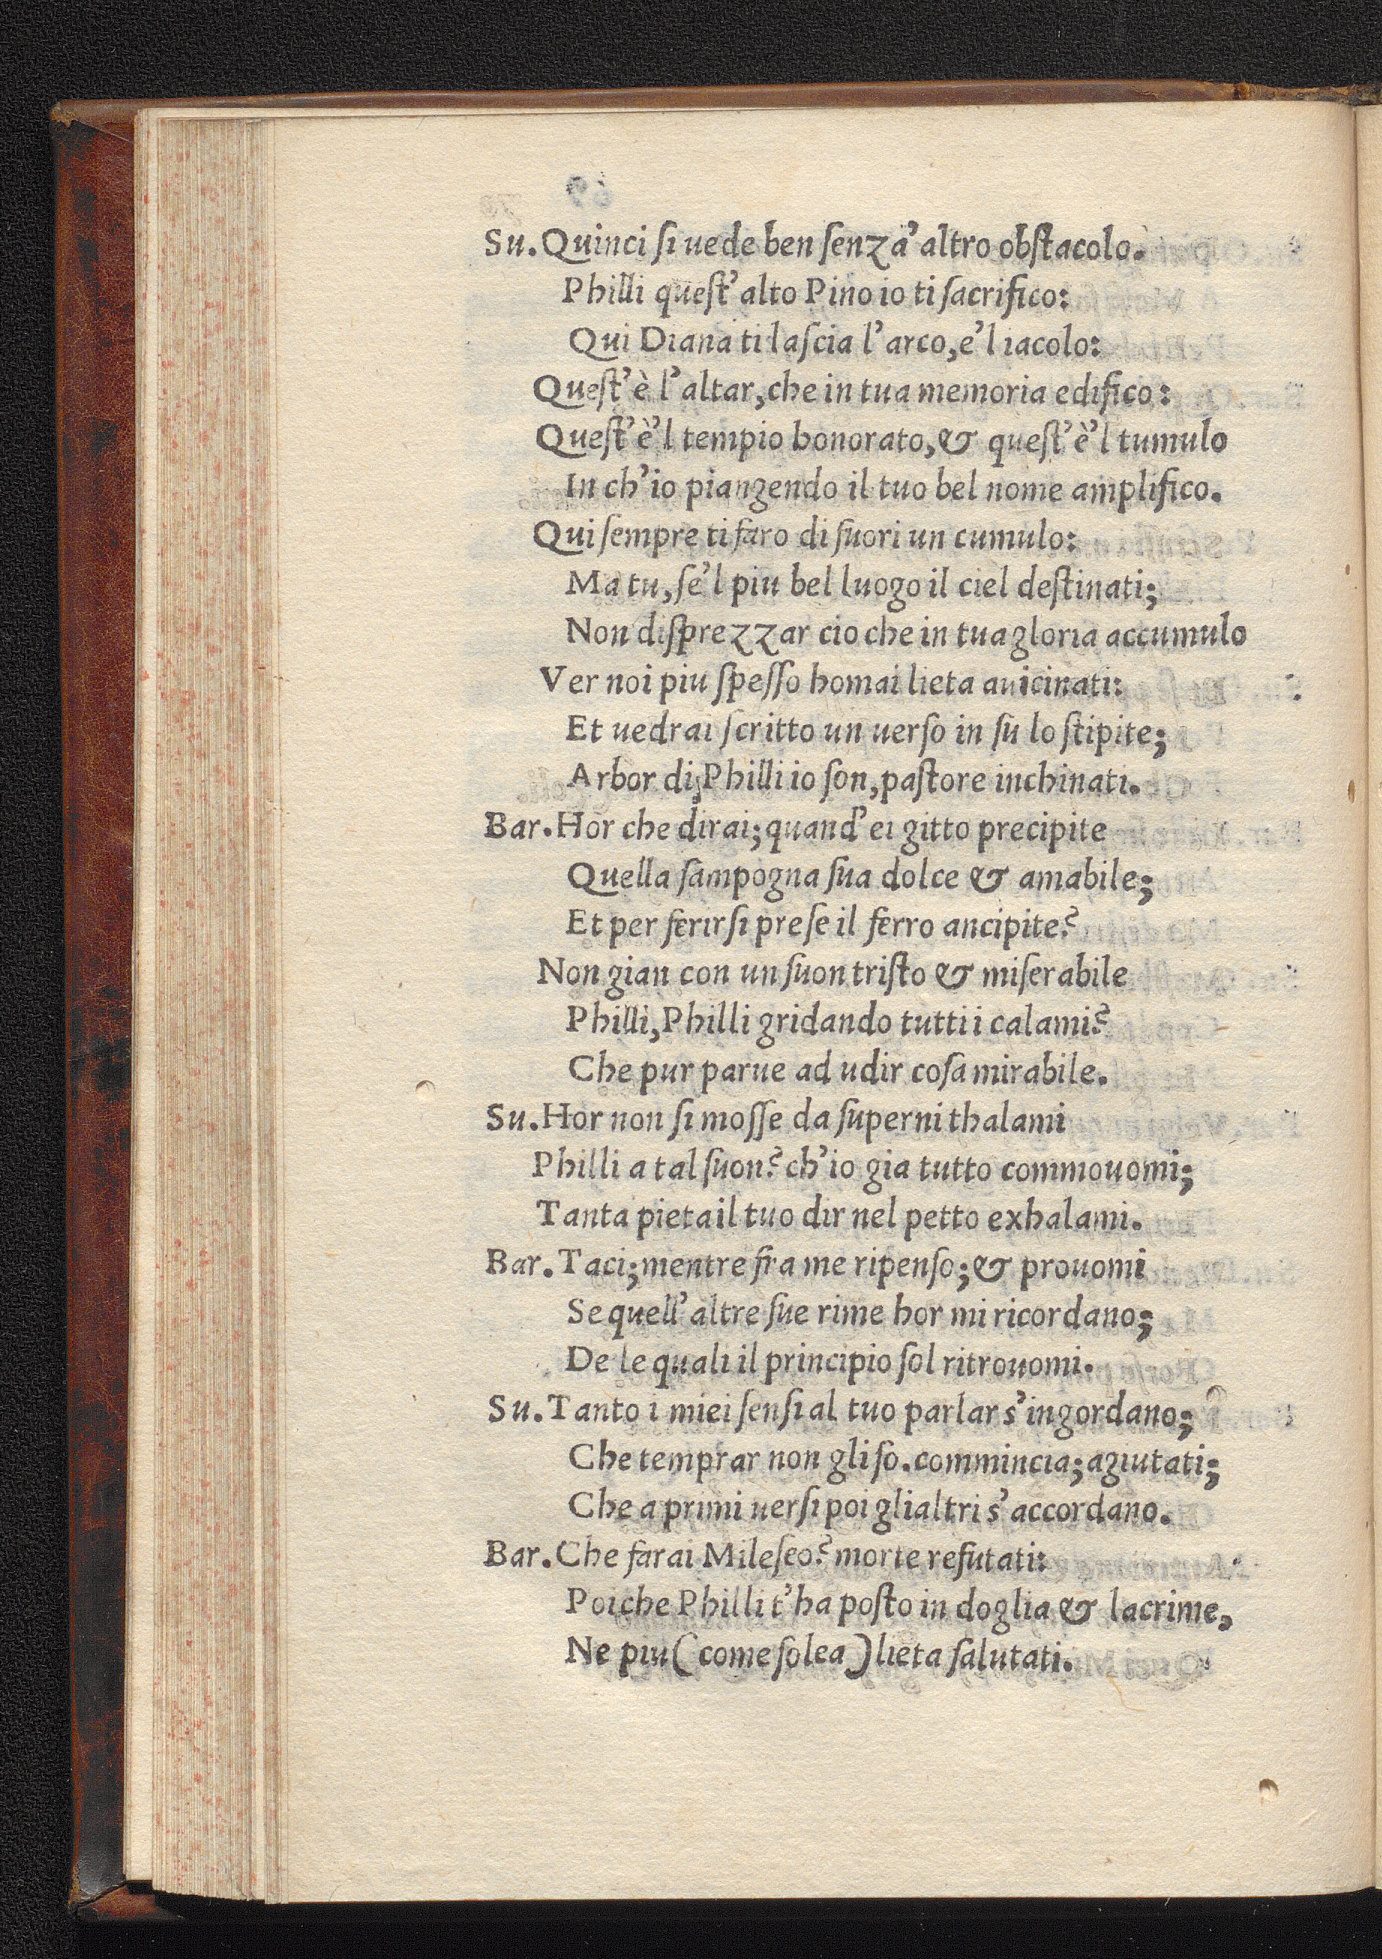 Su. Quinci ſi uede ben ſenz a' altro obſtacolo.
Philli queſt' alto Pino io ti ſacrifico:
Qui Diana ti laſcia l' arco, e' l iacolo:
Queſt' è l' altar, che in tua memoria edifico:
Queſt' è' l tempio honorato, & queſt' è' l tumulo
In ch' io piangendo il tuo bel nome amplifico.
Qui ſempre ti faro di fiori un cumulo:
Ma tu, ſe' l piu bel luogo il ciel deſtinati;
Non diſprezzar cio che in tua gloria accumulo
Ver noi piu ſpeſſo homai lieta auicinati:
Et uedrai ſcritto un uerſo in ſu lo ſtipite;
Arbor di Philli io ſon, paſtore inchinati.
Bar. Hor che dirai; quand' ei gitto precipite
Quella ſampogna ſua dolce & amabile;
Et per ferirſi preſe il ferro ancipite?
Non gian con un ſuon triſto & miſerabile
Philli, Philli gridando tutti i calami?
Che pur parue ad udir coſa mirabile.
Su. Hor non ſi moſſe da ſuperni thalami
Philli a tal ſuon? ch' io gia tutto commouomi;
Tanta pieta il tuo dir nel petto exhalami.
Bar. Taci; mentre fra me ripenſo; & prouomi
Se quell' altre ſue rime hor mi ricordano;
De le quali il principio ſol ritrouomi.
Su. Tanto i miei ſenſi al tuo parlar s' ingordano;
Che temprar non gli ſo. commincia; agiutati;
Che a primi uerſi poi glialtri s' accordano.
Bar. Che farai Mileſeo? morte refutati:
Poiche Philli t' ha poſto in doglia & lacrime,
Ne piu (come ſolea) lieta ſalutati.